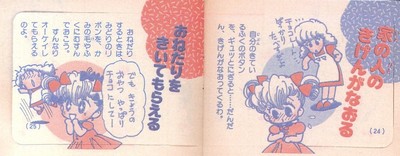 家の人の
きげんがなおる
チョコレート
ばっかり
自分のきてい
るふくのボタン
を、ギュッとにぎると……だんだ
ん、きげんがなおってくるわ。
(24)
おねだりを
きいてもらえる
おねだり
するときは
みどりのリ
ボンを、か
みの毛やふ
くにおすん
でおこう。
すんなり
オーケイし
てもらえる
のよ。
でも きょうの
おやつ やっぱり
チョコ にしてー
(25)